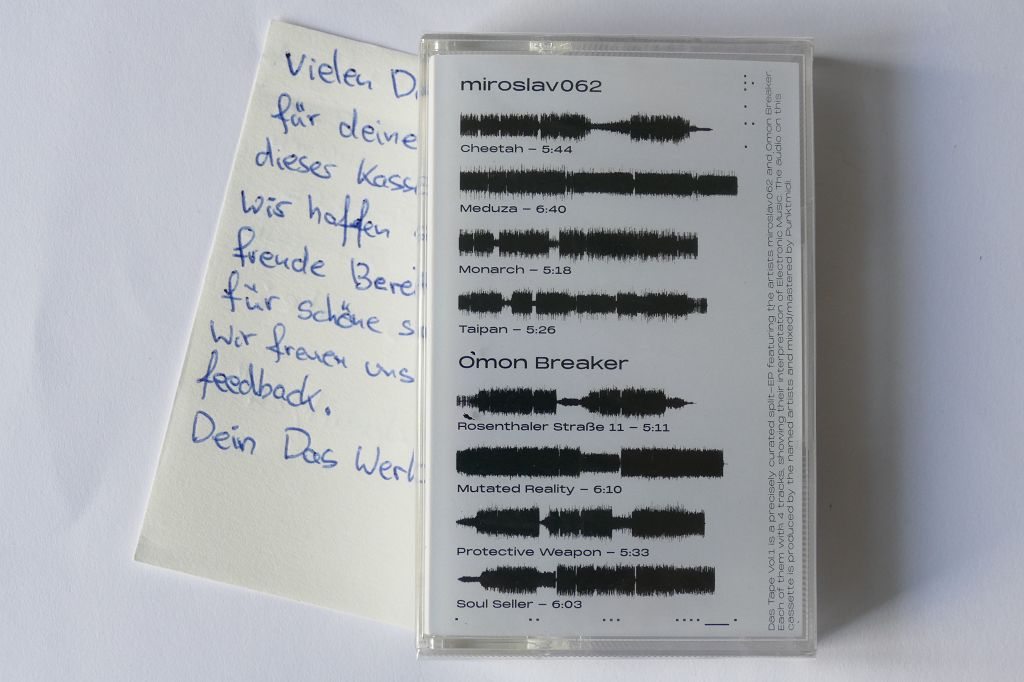 Vielen
für deine
dieses
wir hoffen
freude
für schöne
Wir freuen uns
feedback.
Dein Das
miroslav062
Cheetah – 5:44
Meduza – 6:40
Monarch – 5:18
Taipan – 5:26
Omon Breaker
Rosenthaler Straße 11 – 5:11
Mutated Reality – 6:10
Protective Weapon – 5:33
Soul Seller – 6:03
Das Tape Vol.1 is a precisely curated split-EP featuring the artists miroslav062 and Omon Breaker.
Each of them with 4 tracks, showing their interpretaton of Electronic Music. The audio on this
cassette is produced by the named artists and mixed/mastered by Punktmidi.